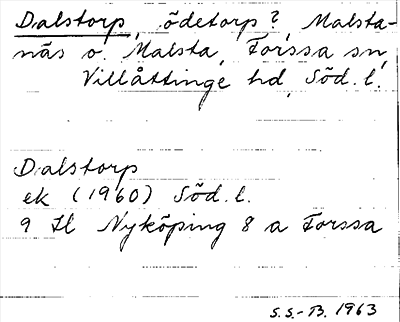 Dalstorp, ödetorp?, Malsta-
näs o. Malsta, Forssa sn,
Villåttinge hd, Söd. l.
Dalstorp
ek (1960) Söd. l.
9 H Nyköping 8 a Forssa
S.S.-B. 1963